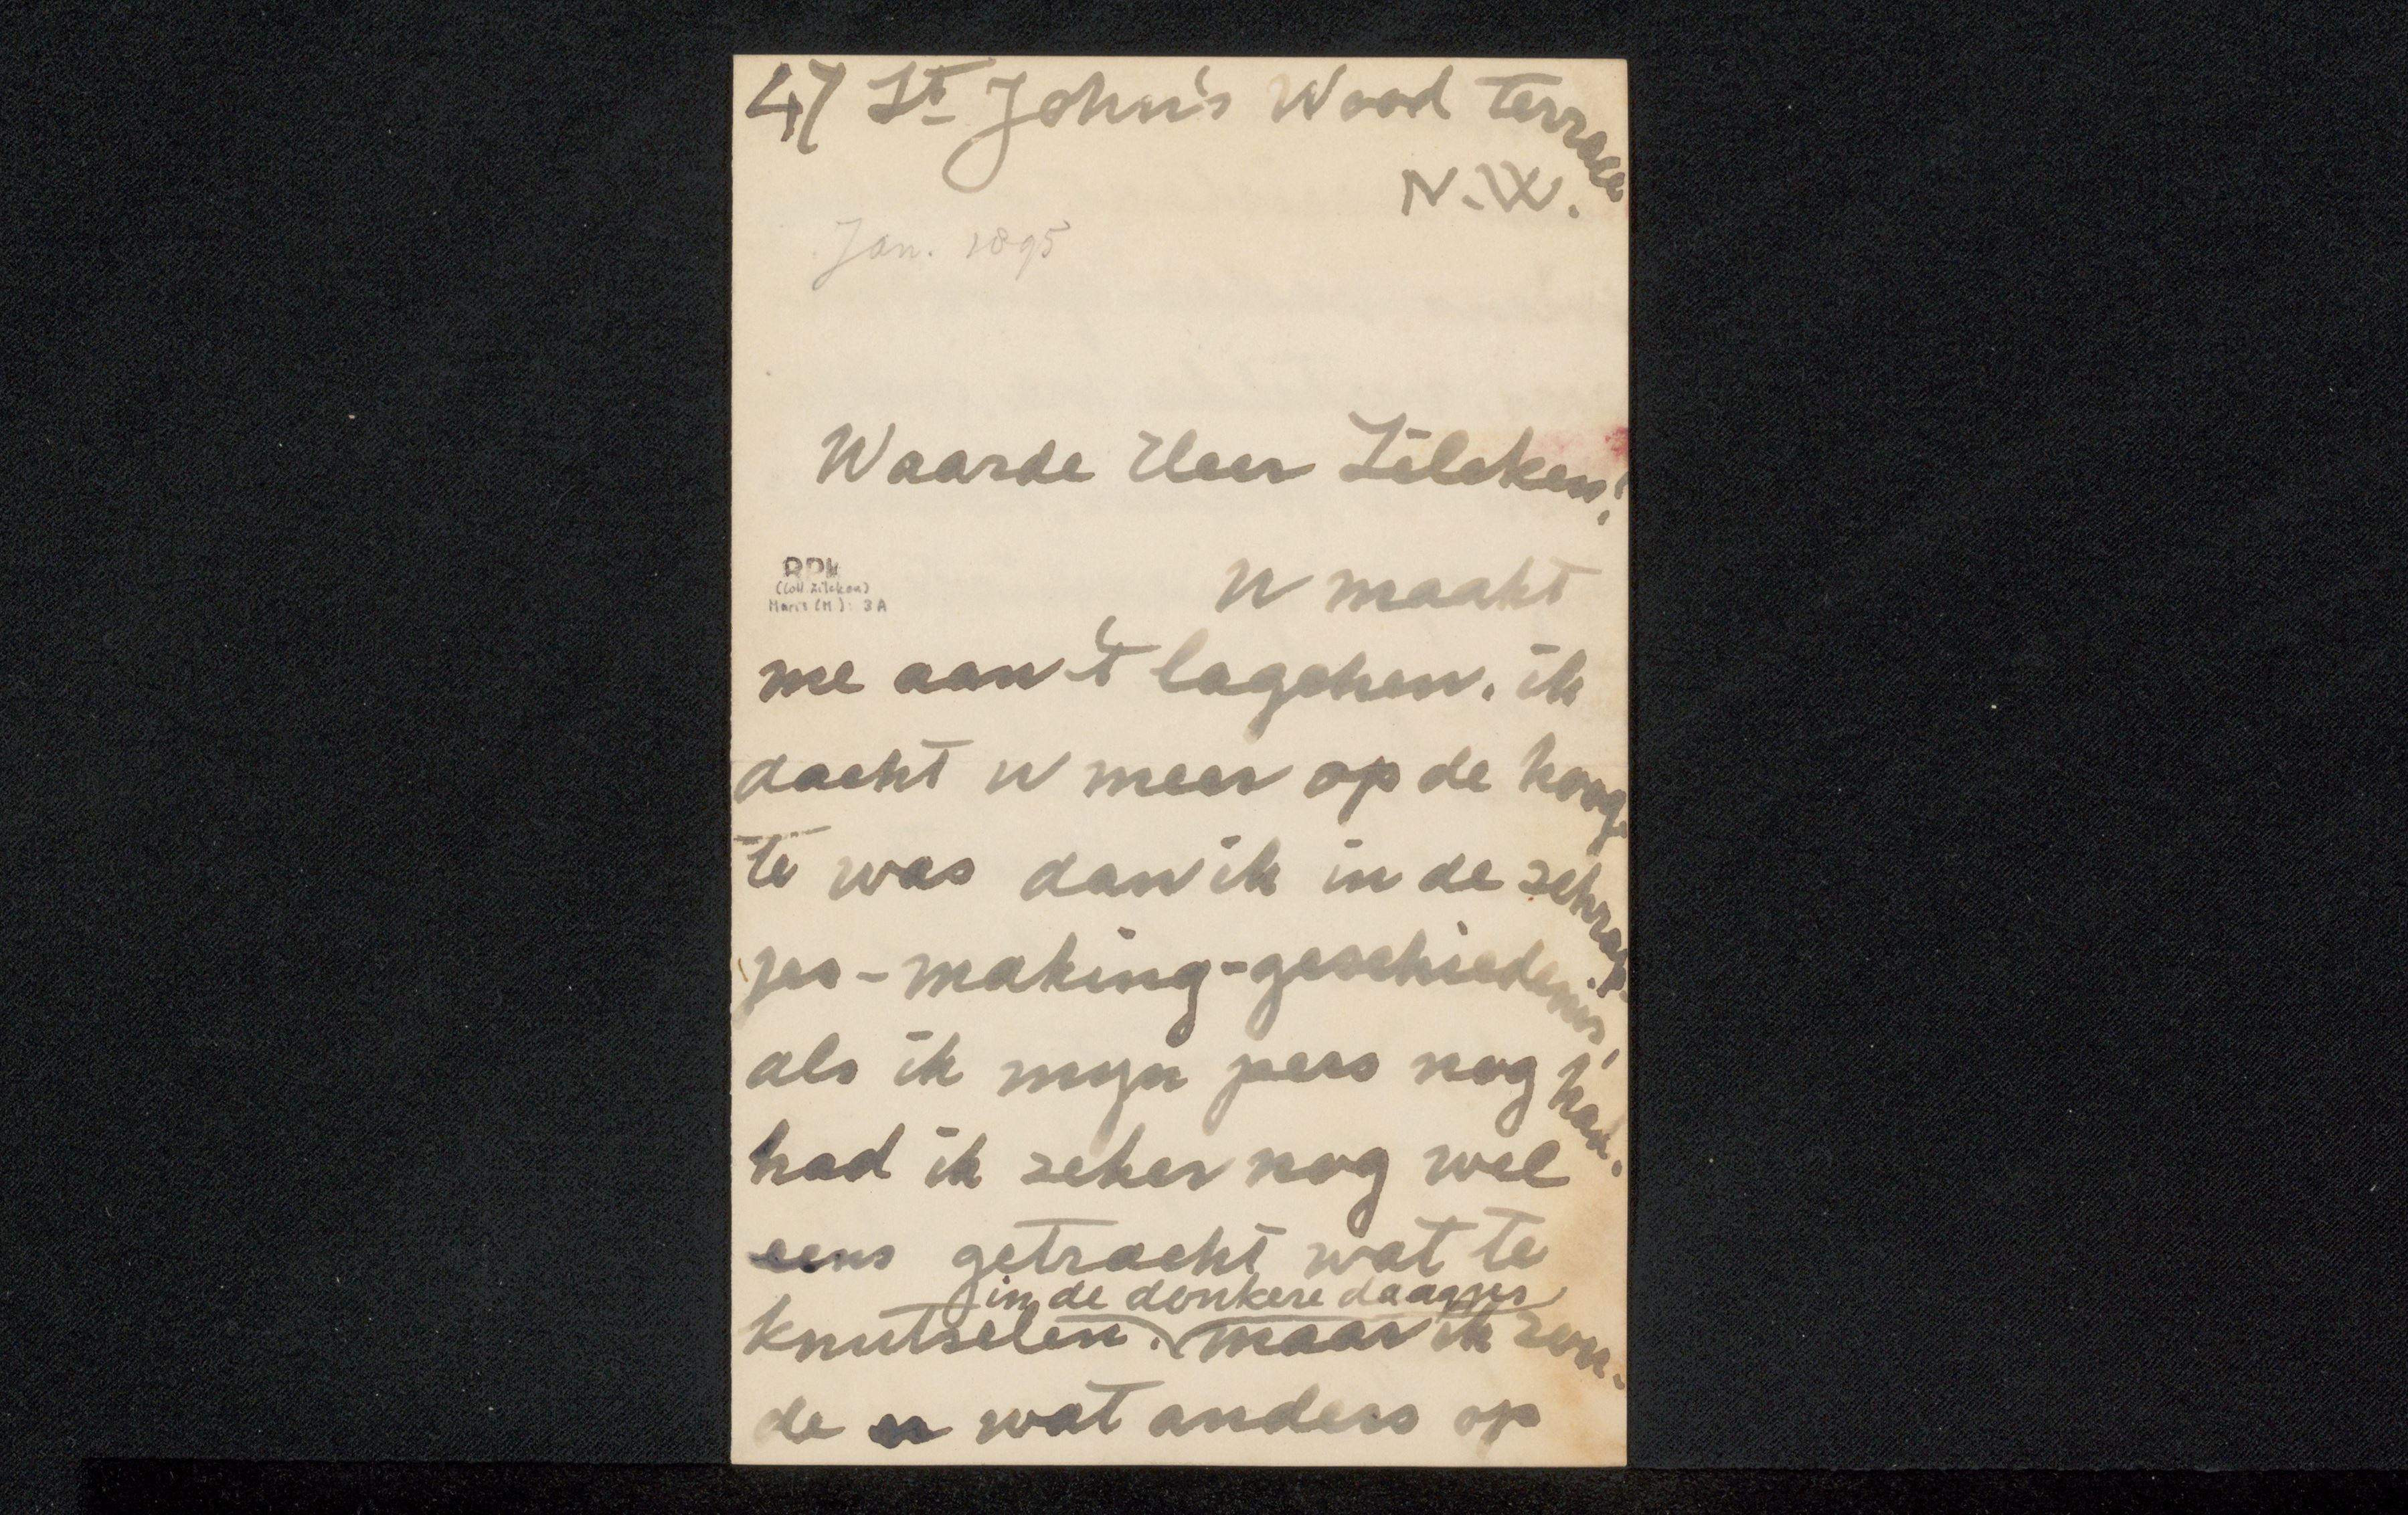 47 St John's Wood terrace
N.W.
Jan. 1895
Waarde Heer Zilcken!
RPK
(Coll. Zilcken)
Maris (M.): 3A
U maakt
me aan 't lagchen. ik
dacht u meer op de hoog-
te was dan ik in de schrap-
jes-making-geschiedenis,
als ik myn pers nog had.
had ik zeker nog wel
eens getracht wat te
in de donkere daagjes
knutselen. maar ik zou-
de u wat anders op